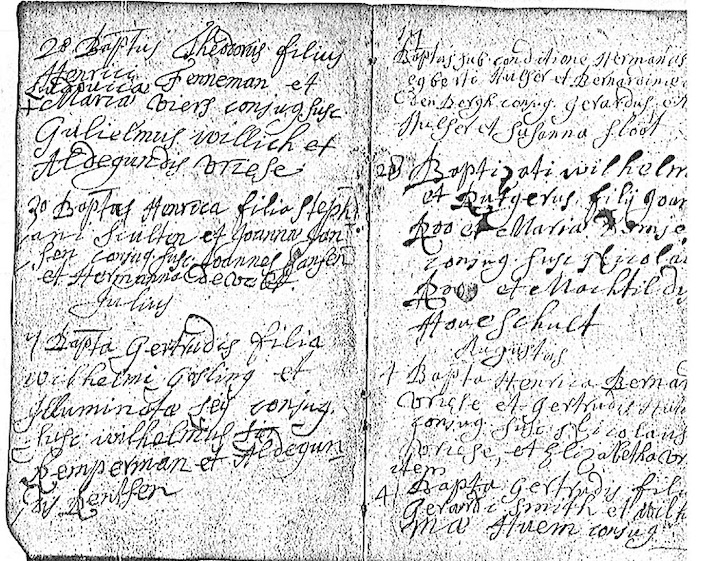 28 Baptus Theodorus filius
Henrici
Ludovica Fenneman et
Maria Viers conjug susc
Gulielmus Willich et
Aldegundis Vriese
30 Bapta Henrica filia Steph
ani Sculten et Joanna Jan
sen conjug susc Joannes Jansen
et Hermanna de Vriet
Julius
7 Bapta Gertrudis filia
Wilhelmi Gosling et
Illuminatæ Seÿ conjug.
susc Wilhelmus
Remperman et Aldegun
dis Renssen
17
Baptus sub conditione Hermanus
Egberti Hulser et Bernardine
conjug. Gerardus
Hulser et Susanna Sloot
28 Baptizati Wilhelm
et Rutgerus filij Joan
Roo et Maria
conjug susc Nicolai
Roo et Machtildis
Hoveschult
Augustus
1 Bapta Henrica Bernar
Vriese et Gertrudis
conjug. susc Nicolaus
Vriese, et Elizabetha Vr
item
4 Bapta Gertrudis fili
Gerardi Smith et Wilh
ma Huem conjug